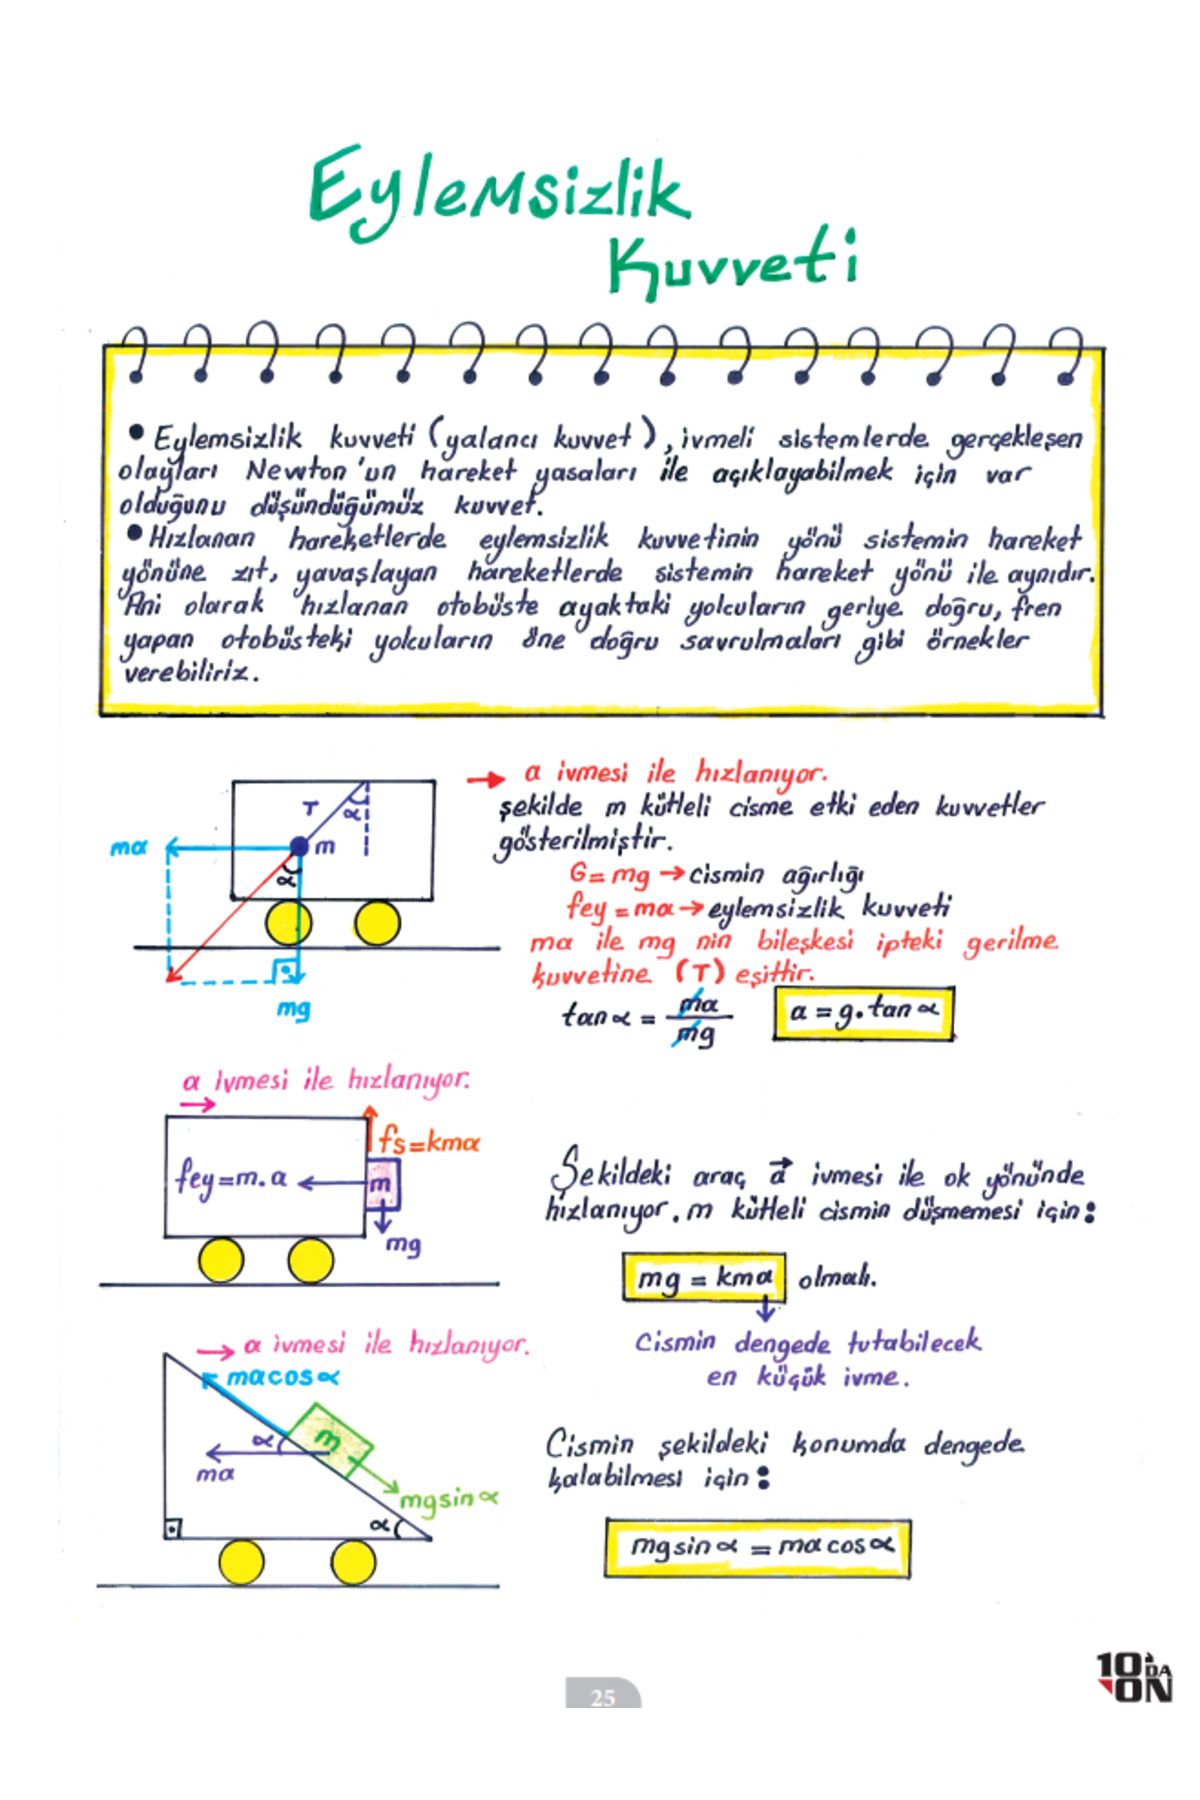 Eylemsizlik
Kuvveti
• Eylemsizlik kuvveti (yalancı kuvvet), ivmeli sistemlerde gerçekleşen
olayları Newton'un hareket yasaları ile açıklayabilmek için var
olduğunu düşündüğümüz kuvvet.
• Hızlanan hareketlerde eylemsizlik kuvvetinin yönü sistemin hareket
yönüne zıt, yavaşlayan hareketlerde sistemin hareket yönü ile aynıdır.
Ani olarak hızlanan otobüste ayaktaki yolcuların geriye doğru, fren
yapan otobüsteki yolcuların öne doğru savrulmaları gibi örnekler
verebiliriz.
→ a ivmesi ile hızlanıyor.
şekilde m kütleli cisme etki eden kuvvetler
gösterilmiştir.
G = mg → cismin ağırlığı
fey = ma → eylemsizlik kuvveti
ma ile mg nin bileşkesi ipteki gerilme
kuvvetine (T) eşittir.
tan α = ma/mg
a = g.tan α
T
α
ma
m
α
mg
a ivmesi ile hızlanıyor.
fs = kma
fey = m.a
m
mg
Şekildeki araç a⃗ ivmesi ile ok yönünde
hızlanıyor. m kütleli cismin düşmemesi için:
mg = kma olmalı.
Cismin dengede tutabilecek
en küçük ivme.
→ a ivmesi ile hızlanıyor.
macosα
m
α
ma
mgsinα
α
Cismin şekildeki konumda dengede
kalabilmesi için:
mgsinα = macosα
25
10'DA
ON